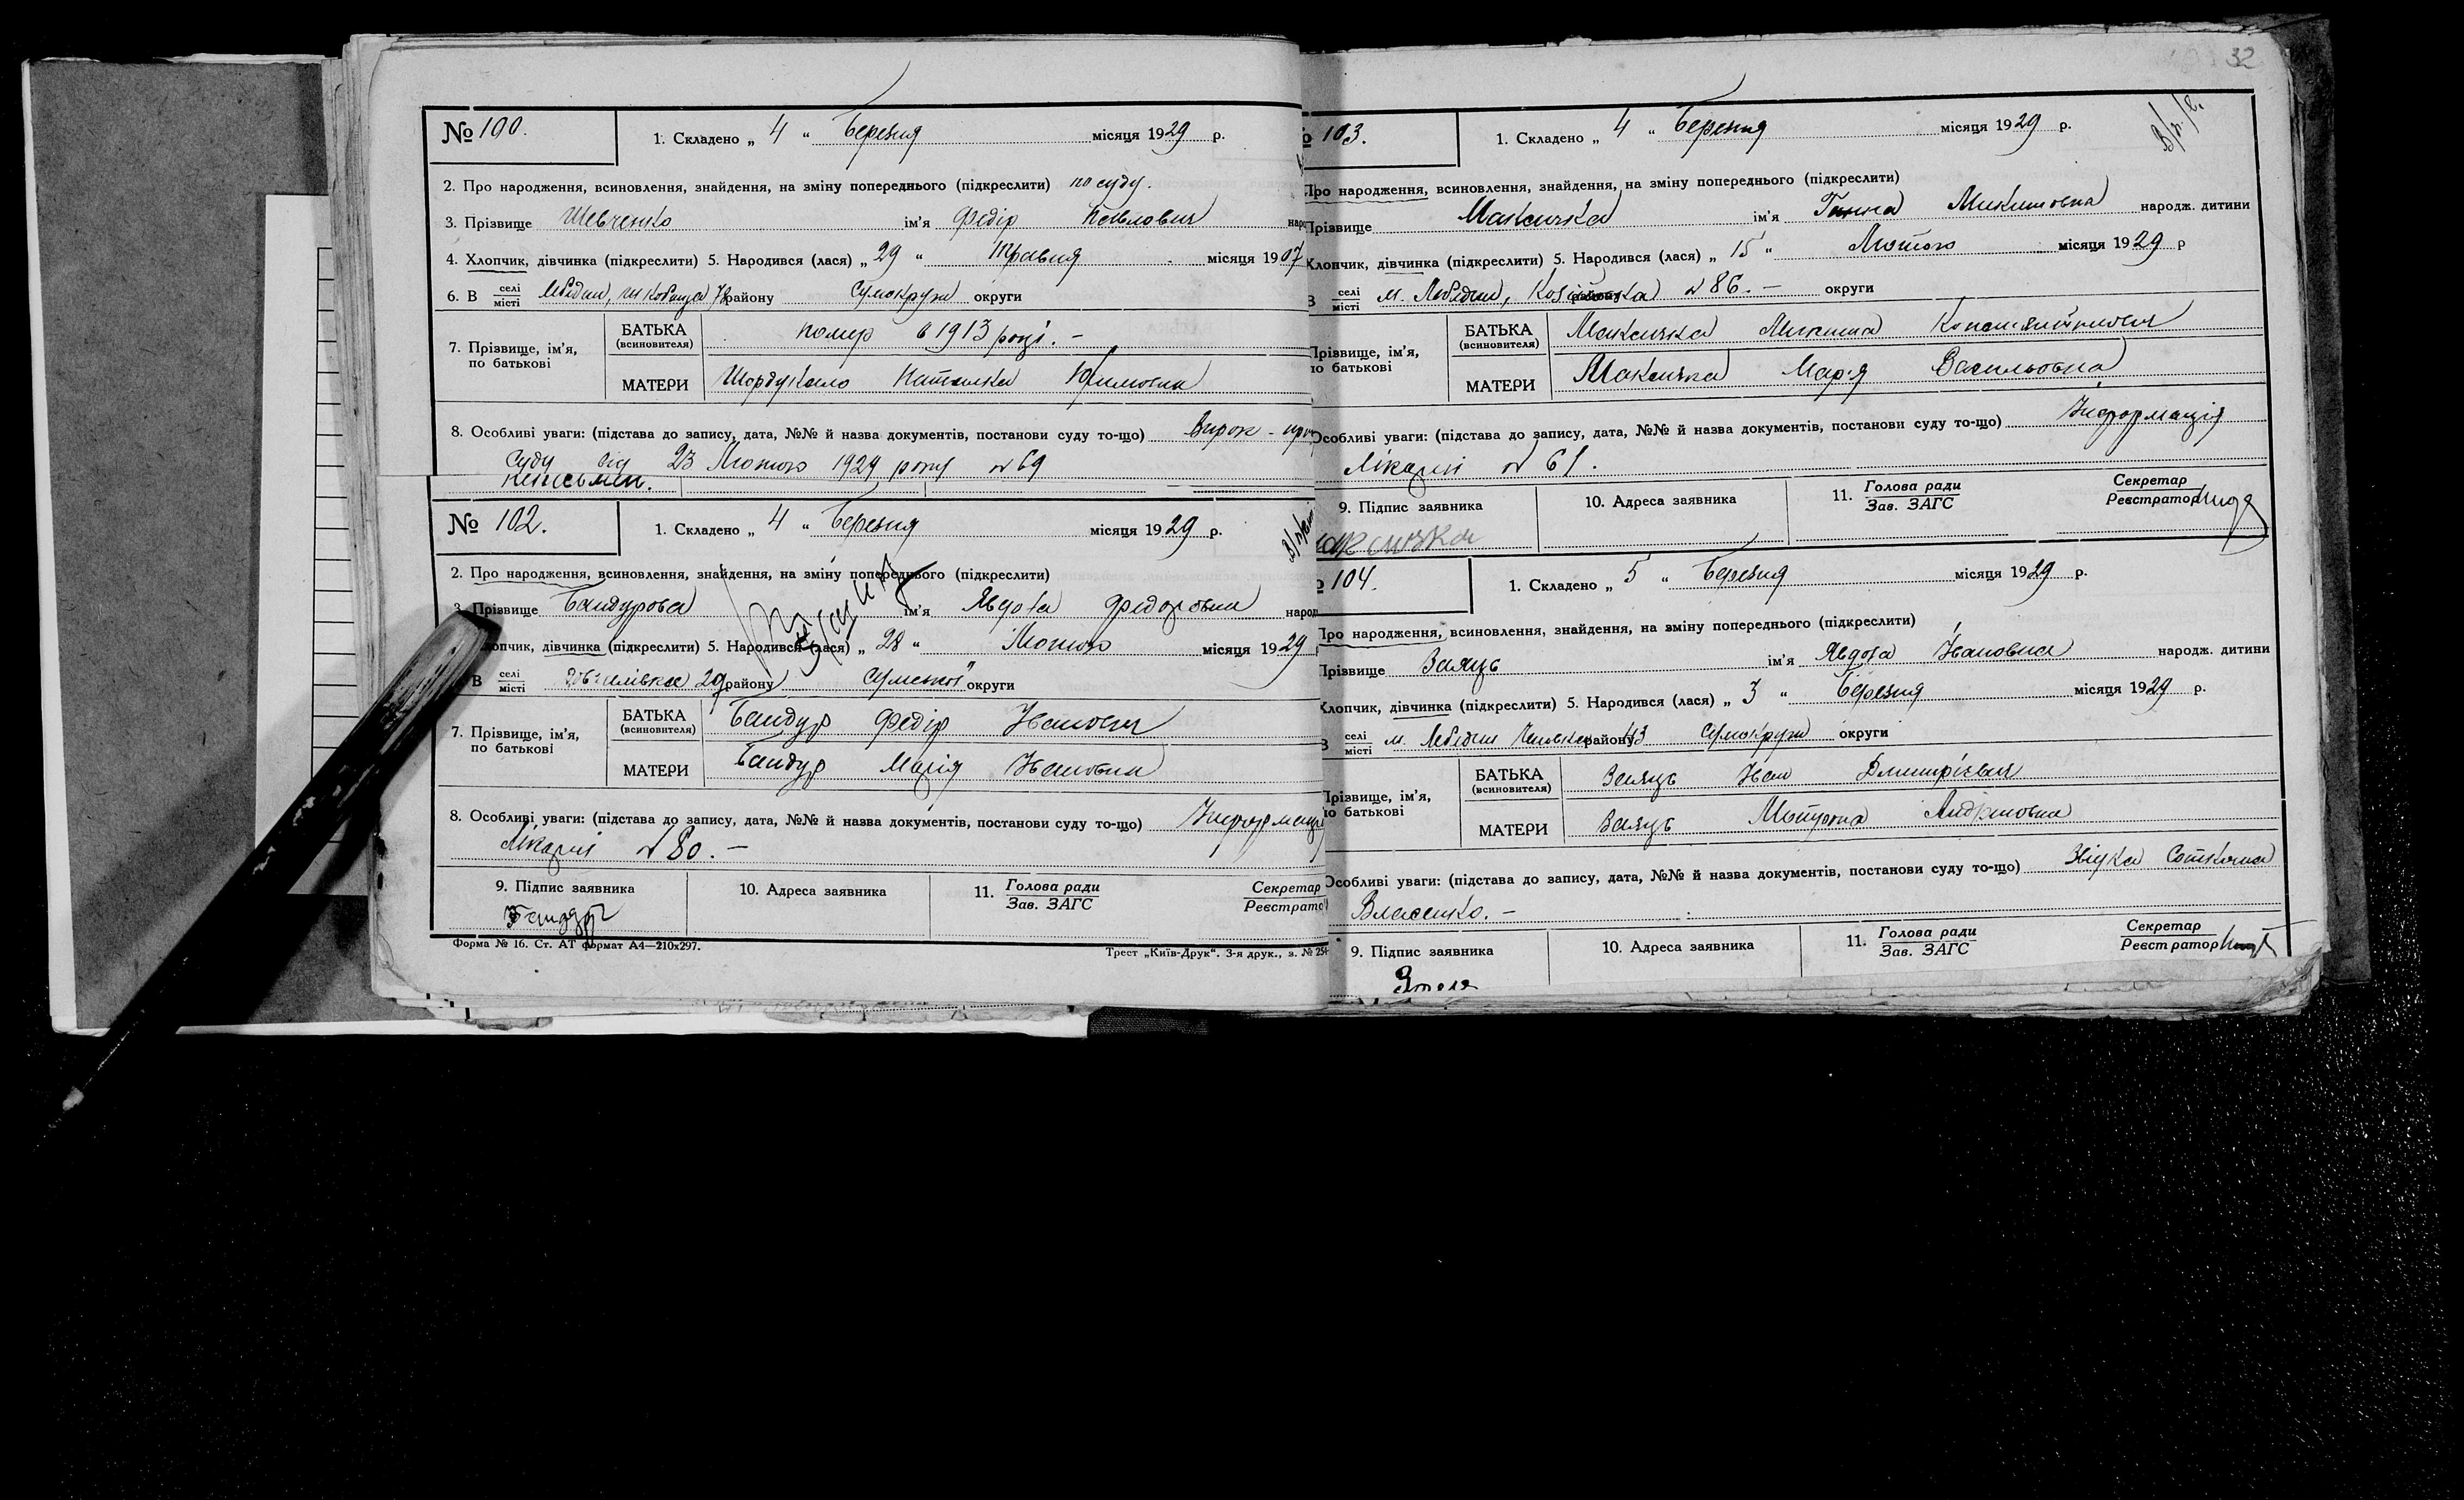 № 100.
1. Складено „ 4 “ Березня місяця 1929 р.
2. Про народження, всиновлення, знайдення, на зміну попереднього (підкреслити) по суду.
3. Прізвище Шевченко ім’я Федір Павлович
4. Хлопчик, дівчинка (підкреслити) 5. Народився (лася) „ 29 “ Травня місяця 1907
6. В селі місті Лебедин, району Сумокруги округи
7. Прізвище, ім’я, по батькові
БАТЬКА (всиновителя) помер в 1913 році. –
МАТЕРИ Наталка Юхимовна
8. Особливі уваги: (підстава до запису, дата, №№ й назва документів, постанови суду то-що) Вирок -
суду від 23 Лютого 1929 року № 69
неписьмен.
№ 102.
1. Складено „ 4 “ Березня місяця 1929 р.
2. Про народження, всиновлення, знайдення, на зміну попереднього (підкреслити)
3. Прізвище Бандурова ім’я Явдоха Федоровна
дівчинка (підкреслити) 5. Народився (лася) „ 28 “ Лютого місяця 1929
В селі місті 29 району Сумської округи
7. Прізвище, ім’я, по батькові
БАТЬКА (всиновителя) Бандур Федір Іванович
МАТЕРИ Бандур Марія Івановна
8. Особливі уваги: (підстава до запису, дата, №№ й назва документів, постанови суду то-що) Інформація
Лікарні № 80. –
9. Підпис заявника
10. Адреса заявника
11. Голова ради Зав. ЗАГС
Секретар Реєстратор
Бандур
Форма № 16. Ст. АТ формат А4—210х297.
Трест „Київ-Друк“. 3-я друк., з. № 254
32
103.
1. Складено „ 4 “ Березня місяця 1929 р.
Про народження, всиновлення, знайдення, на зміну попереднього (підкреслити)
Прізвище Макситка ім’я Ганна Микитовна народж. дитини
Хлопчик, дівчинка (підкреслити) 5. Народився (лася) „ 15 “ Лютого місяця 1929 р
В селі місті м. Лебедин, № 86. – округи
Прізвище, ім’я, по батькові
БАТЬКА (всиновителя) Микита Константинович
МАТЕРИ Мар’я Васильовна
Особливі уваги: (підстава до запису, дата, №№ й назва документів, постанови суду то-що) Інформація
Лікарні № 61.
9. Підпис заявника
10. Адреса заявника
11. Голова ради Зав. ЗАГС
Секретар Реєстратор
104.
1. Складено „ 5 “ Березня місяця 1929 р.
Про народження, всиновлення, знайдення, на зміну попереднього (підкреслити)
Прізвище Заяць ім’я Явдоха Івановна народж. дитини
Хлопчик, дівчинка (підкреслити) 5. Народився (лася) „ 3 “ Березня місяця 1929 р.
В селі місті м. Лебедин району 43 Сумокруги округи
Прізвище, ім’я, по батькові
БАТЬКА (всиновителя) Заяць Іван Дмитрієвич
МАТЕРИ Заяць Мотрона Андріовна
Особливі уваги: (підстава до запису, дата, №№ й назва документів, постанови суду то-що)
Власенко. –
9. Підпис заявника
10. Адреса заявника
11. Голова ради Зав. ЗАГС
Секретар Реєстратор